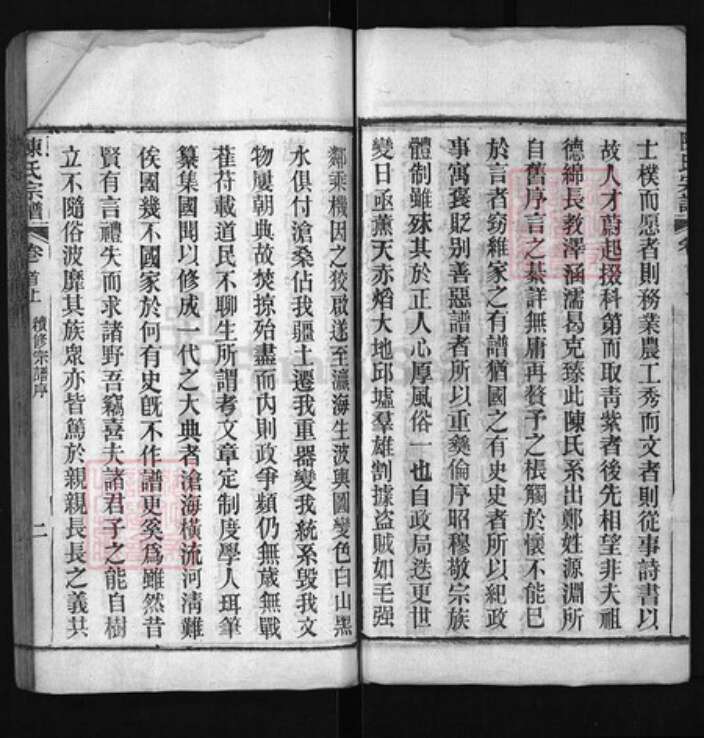 士樸而愿者則務業農工秀而文者則從事詩書以
故人才蔚起掇科第而取青紫者後先相望非夫祖
德綿長教澤涵濡曷克臻此陳氏系出鄭姓源淵所
自舊序言之綦詳無庸再贅予之棖觸於懷不能已
於言者竊維家之有譜猶國之有史史者所以紀政
事寓褒貶別善惡譜者所以重彝倫序昭穆敬宗族
體制雖殊其於正人心厚風俗一也自政局迭更世
變日亟薰天赤焰大地邱墟羣雄割據盜賊如毛强
鄰乘機因之狡啟遂至瀛海生波輿圖變色白山黑
水俱付滄桑佔我疆土遷我重器變我統系毀我文
物屢朝典故焚掠殆盡而內則政爭頻仍無歲無戰
萑苻載道民不聊生所謂考文章定制度學人珥筆
纂集國聞以修成一代之大典者滄海橫流河清難
俟國幾不國家於何有史旣不作譜更奚爲雖然昔
賢有言禮失而求諸野吾竊喜夫諸君子之能自樹
立不隨俗波靡其族衆亦皆篤於親親長長之義共
陳氏宗譜
卷首上
續修宗譜序
二